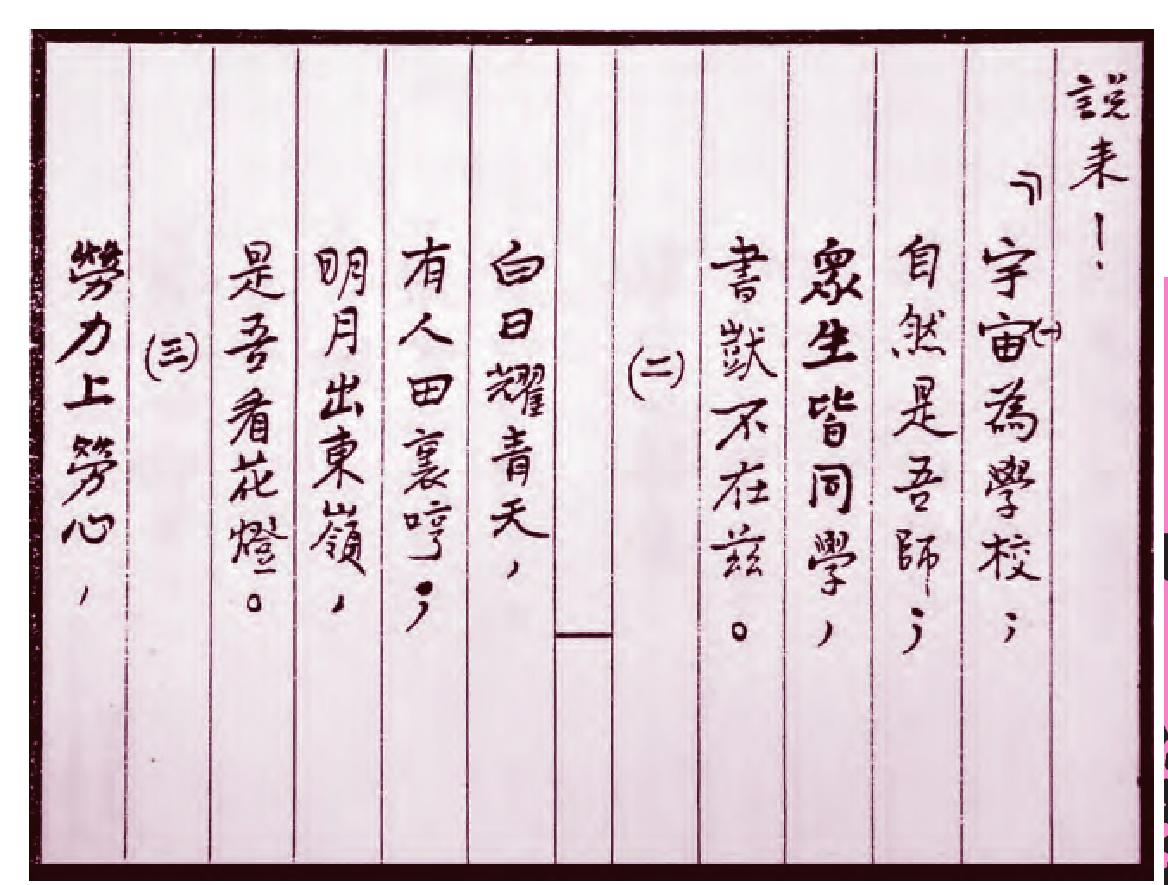 説来！
(一)
『宇宙為學校；
自然是吾師；
衆生皆同學，
書獃不在茲。
(二)
白日耀青天，
有人田裏哼；
明月出東嶺，
是吾看花燈。
(三)
勞力上勞心，